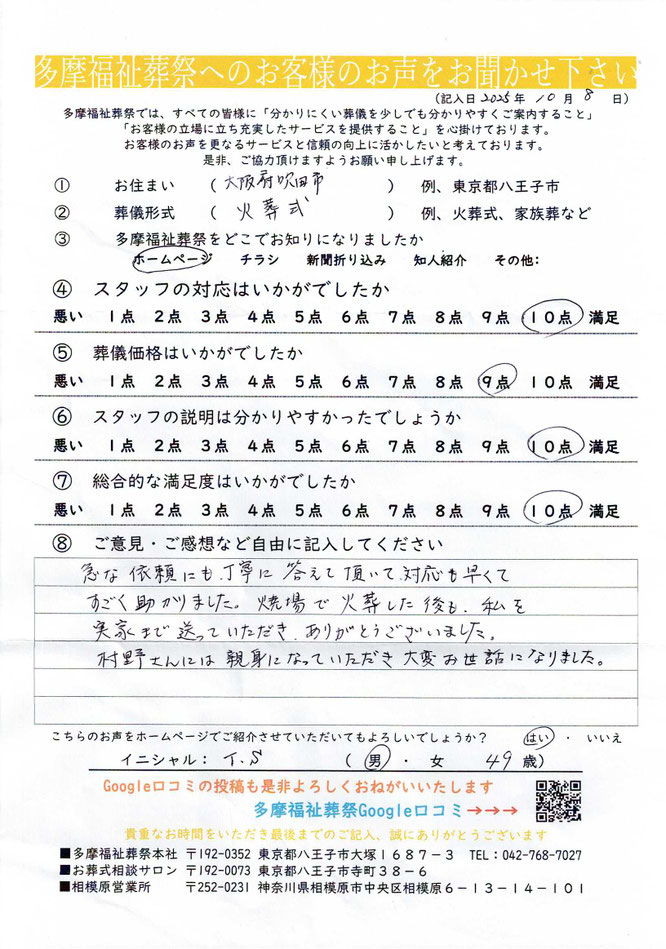 多摩福祉葬祭へのお客様のお声をお聞かせ下さい
(記入日2025年 10月 8 日)
多摩福祉葬祭では、すべての皆様に「分かりにくい葬儀を少しでも分かりやすくご案内すること」
「お客様の立場に立ち充実したサービスを提供すること」を心掛けております。
お客様のお声を更なるサービスと信頼の向上に活かしたいと考えております。
是非、ご協力頂けますようお願い申し上げます。
① お住まい (大阪府吹田市) 例、東京都八王子市
② 葬儀形式 (火葬式) 例、火葬式、家族葬など
③ 多摩福祉葬祭をどこでお知りになりましたか
ホームページ チラシ 新聞折り込み 知人紹介 その他:
④ スタッフの対応はいかがでしたか
悪い 1点 2点 3点 4点 5点 6点 7点 8点 9点 10点 満足
⑤ 葬儀価格はいかがでしたか
悪い 1点 2点 3点 4点 5点 6点 7点 8点 9点 10点 満足
⑥ スタッフの説明は分かりやすかったでしょうか
悪い 1点 2点 3点 4点 5点 6点 7点 8点 9点 10点 満足
⑦ 総合的な満足度はいかがでしたか
悪い 1点 2点 3点 4点 5点 6点 7点 8点 9点 10点 満足
⑧ ご意見・ご感想など自由に記入してください
急な依頼にも丁寧に答えて頂いて対応も早くて
すごく助かりました。焼場で火葬した後も、私を
実家まで送っていただき、ありがとうございました。
村野さんには親身になっていただき大変お世話になりました。
こちらのお声をホームページでご紹介させていただいてもよろしいでしょうか? はい ・ いいえ
イニシャル: T.S (男 ・ 女 49歳)
Google口コミの投稿も是非よろしくおねがいいたします
多摩福祉葬祭Google口コミ→→→
貴重なお時間をいただき最後までのご記入、誠にありがとうございます
■多摩福祉葬祭本社 〒192-0352 東京都八王子市大塚1687-3 TEL:042-768-7027
■お葬式相談サロン 〒192-0073 東京都八王子市寺町38-6
■相模原営業所 〒252-0231 神奈川県相模原市中央区相模原6-13-14-101